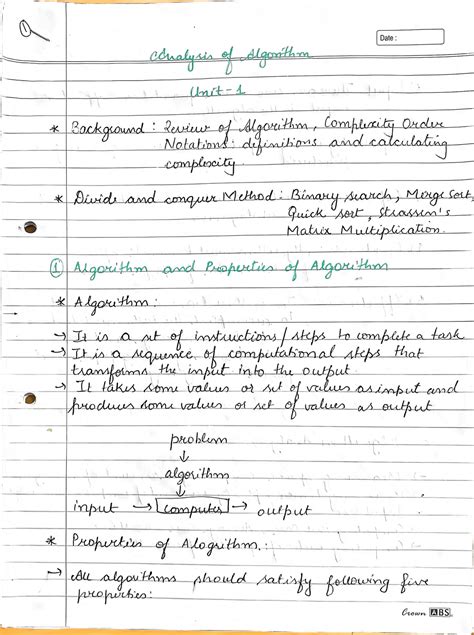 1
Date :
Analysis of Algorithm
Unit - 1
* Background : Review of Algorithm, Complexity Order
Notations: definitions and calculating
complexity.
* Divide and conquer Method : Binary search, Merge Sort,
Quick sort, Strassen's
Matrix Multiplication.
① Algorithm and Properties of Algorithm
* Algorithm :
→ It is a set of instructions/steps to complete a task
→ It is a sequence of computational steps that
transforms the input into the output
→ It takes some values or set of values as input and
produces some values or set of values as output
problem
↓
algorithm
↓
input → computer → output
* Properties of Alogrithm. :
→ All algorithms should satisfy following five
properties:
Crown ABS